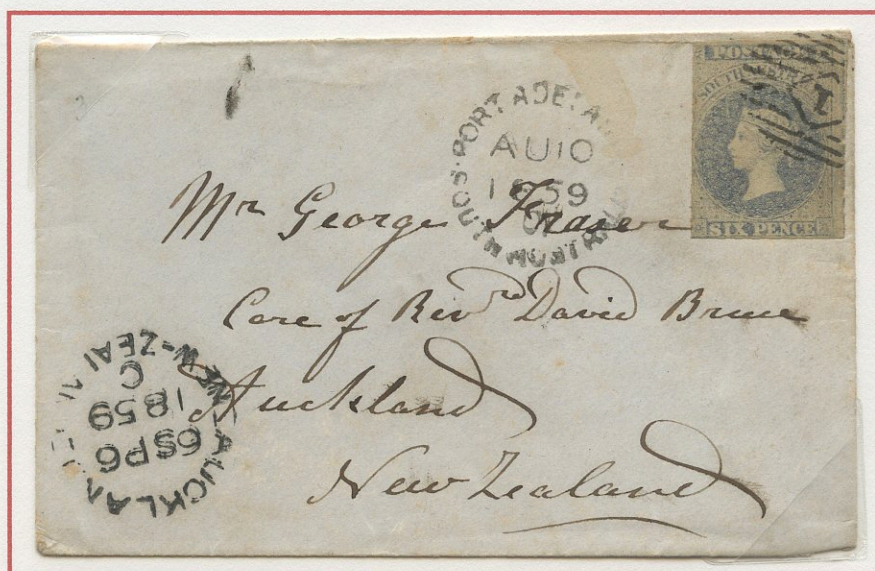 POSTAGE
SOUTH AUSTRALIA
1
SIX PENCE
PORT ADELAIDE
AU 10
1859
SOUTH AUSTRALIA
Mr George Fraser
Care of Revrd David Bruce
Auckland
New Zealand
NEW-ZEALAND
C
1859
6SP6
AUCKLAND